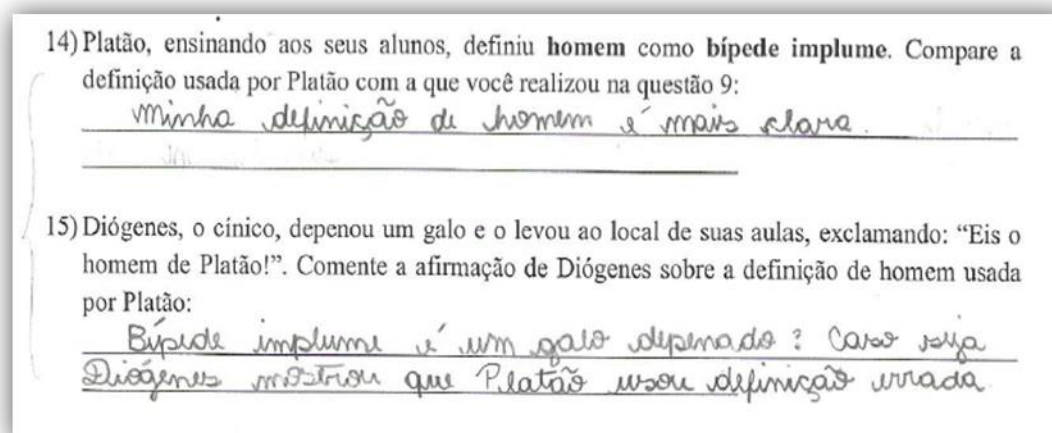 14) Platão, ensinando aos seus alunos, definiu homem como bípede implume. Compare a
definição usada por Platão com a que você realizou na questão 9:
Minha definição de homem é mais clara.
15) Diógenes, o cínico, depenou um galo e o levou ao local de suas aulas, exclamando: “Eis o
homem de Platão!”. Comente a afirmação de Diógenes sobre a definição de homem usada
por Platão:
Bípede implume é um galo depenado? Caso seja
Diógenes mostrou que Platão usou definição errada.